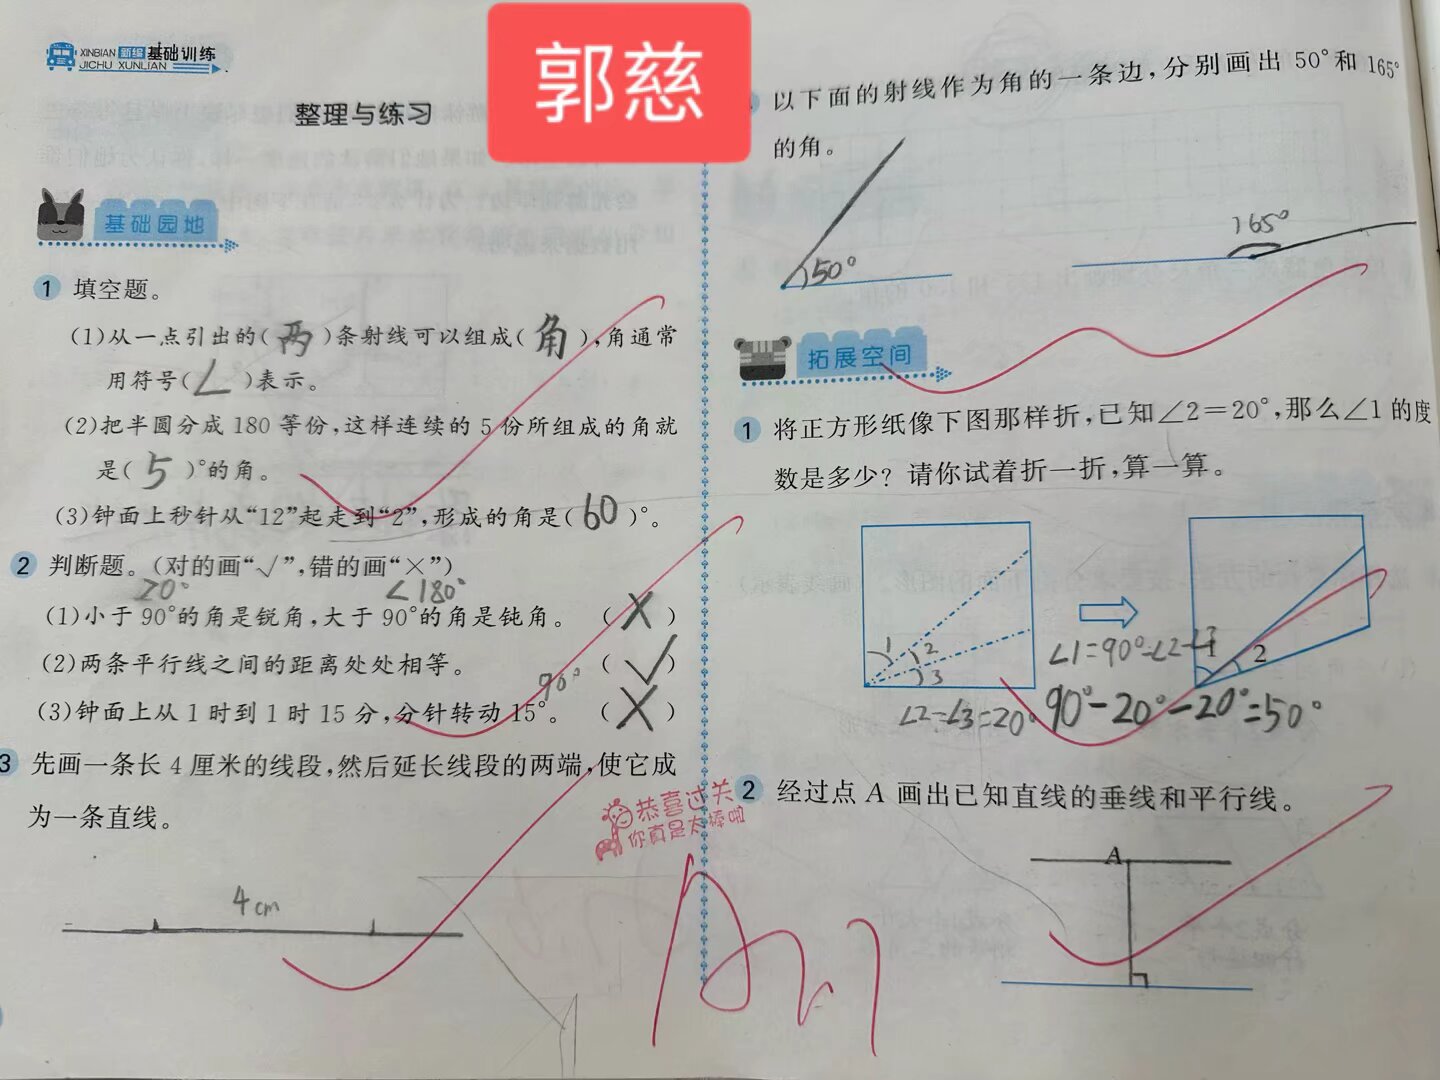 XINBIAN 新编 基础训练
JICHU XUNLIAN
郭慈
整理与练习
基础园地
1 填空题。
(1)从一点引出的(两)条射线可以组成(角),角通常
用符号(∠)表示。
(2)把半圆分成180等份,这样连续的5份所组成的角就
是(5)°的角。
(3)钟面上秒针从“12”起走到“2”,形成的角是(60)°。
2 判断题。(对的画“√”,错的画“×”)
<180°
(1)小于90°的角是锐角,大于90°的角是钝角。 (×)
(2)两条平行线之间的距离处处相等。 (√)
90°
(3)钟面上从1时到1时15分,分针转动15°。 (×)
3 先画一条长4厘米的线段,然后延长线段的两端,使它成
为一条直线。
4cm
恭喜过关
你真是太棒啦
以下面的射线作为角的一条边,分别画出50°和165°
的角。
50°
165°
拓展空间
1 将正方形纸像下图那样折,已知∠2=20°,那么∠1的度
数是多少?请你试着折一折,算一算。
1
2
3
1
2
∠1=90°-∠2-∠3
∠2=∠3=20°
90°-20°-20°=50°
2 经过点A画出已知直线的垂线和平行线。
A